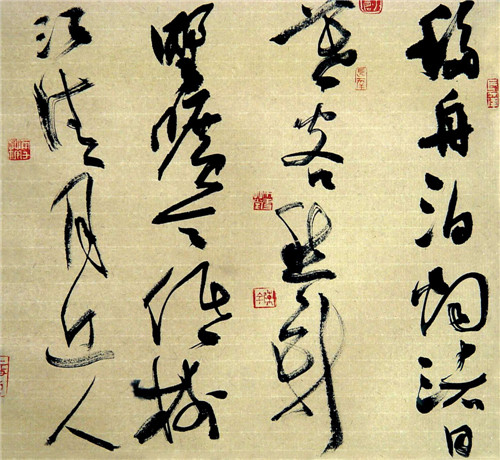 移舟泊烟渚日
暮客愁新
野曠天低樹
江清月近人